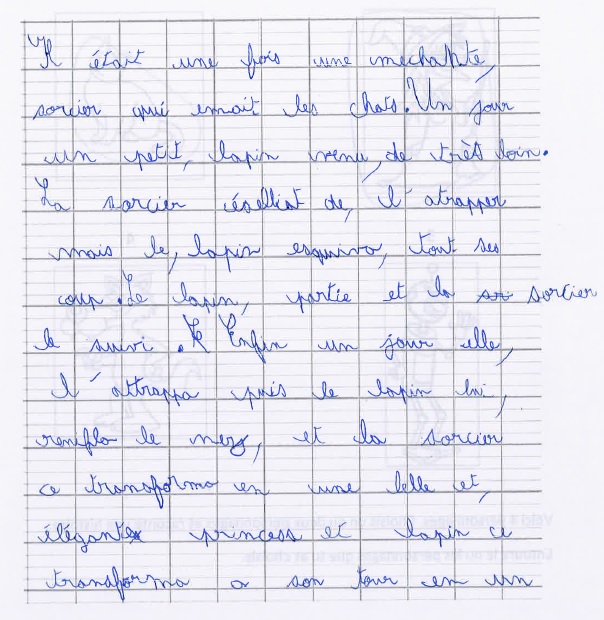 Il était une fois une mechante,
sorcier qui emait les chats. Un jour
un petit, lapin venu, de très loin.
La sorcier de, l'atrapper
mais le, lapin esquiva, tout ses
coup. Le lapin, partie et la sorcier
le suivi. Enfin un jour elle,
l'attrappa puis le lapin lui,
renifla le nez, et la sorcier
ce transforma en une belle et,
élégante princess et lapin ce
transforma a son tour en un